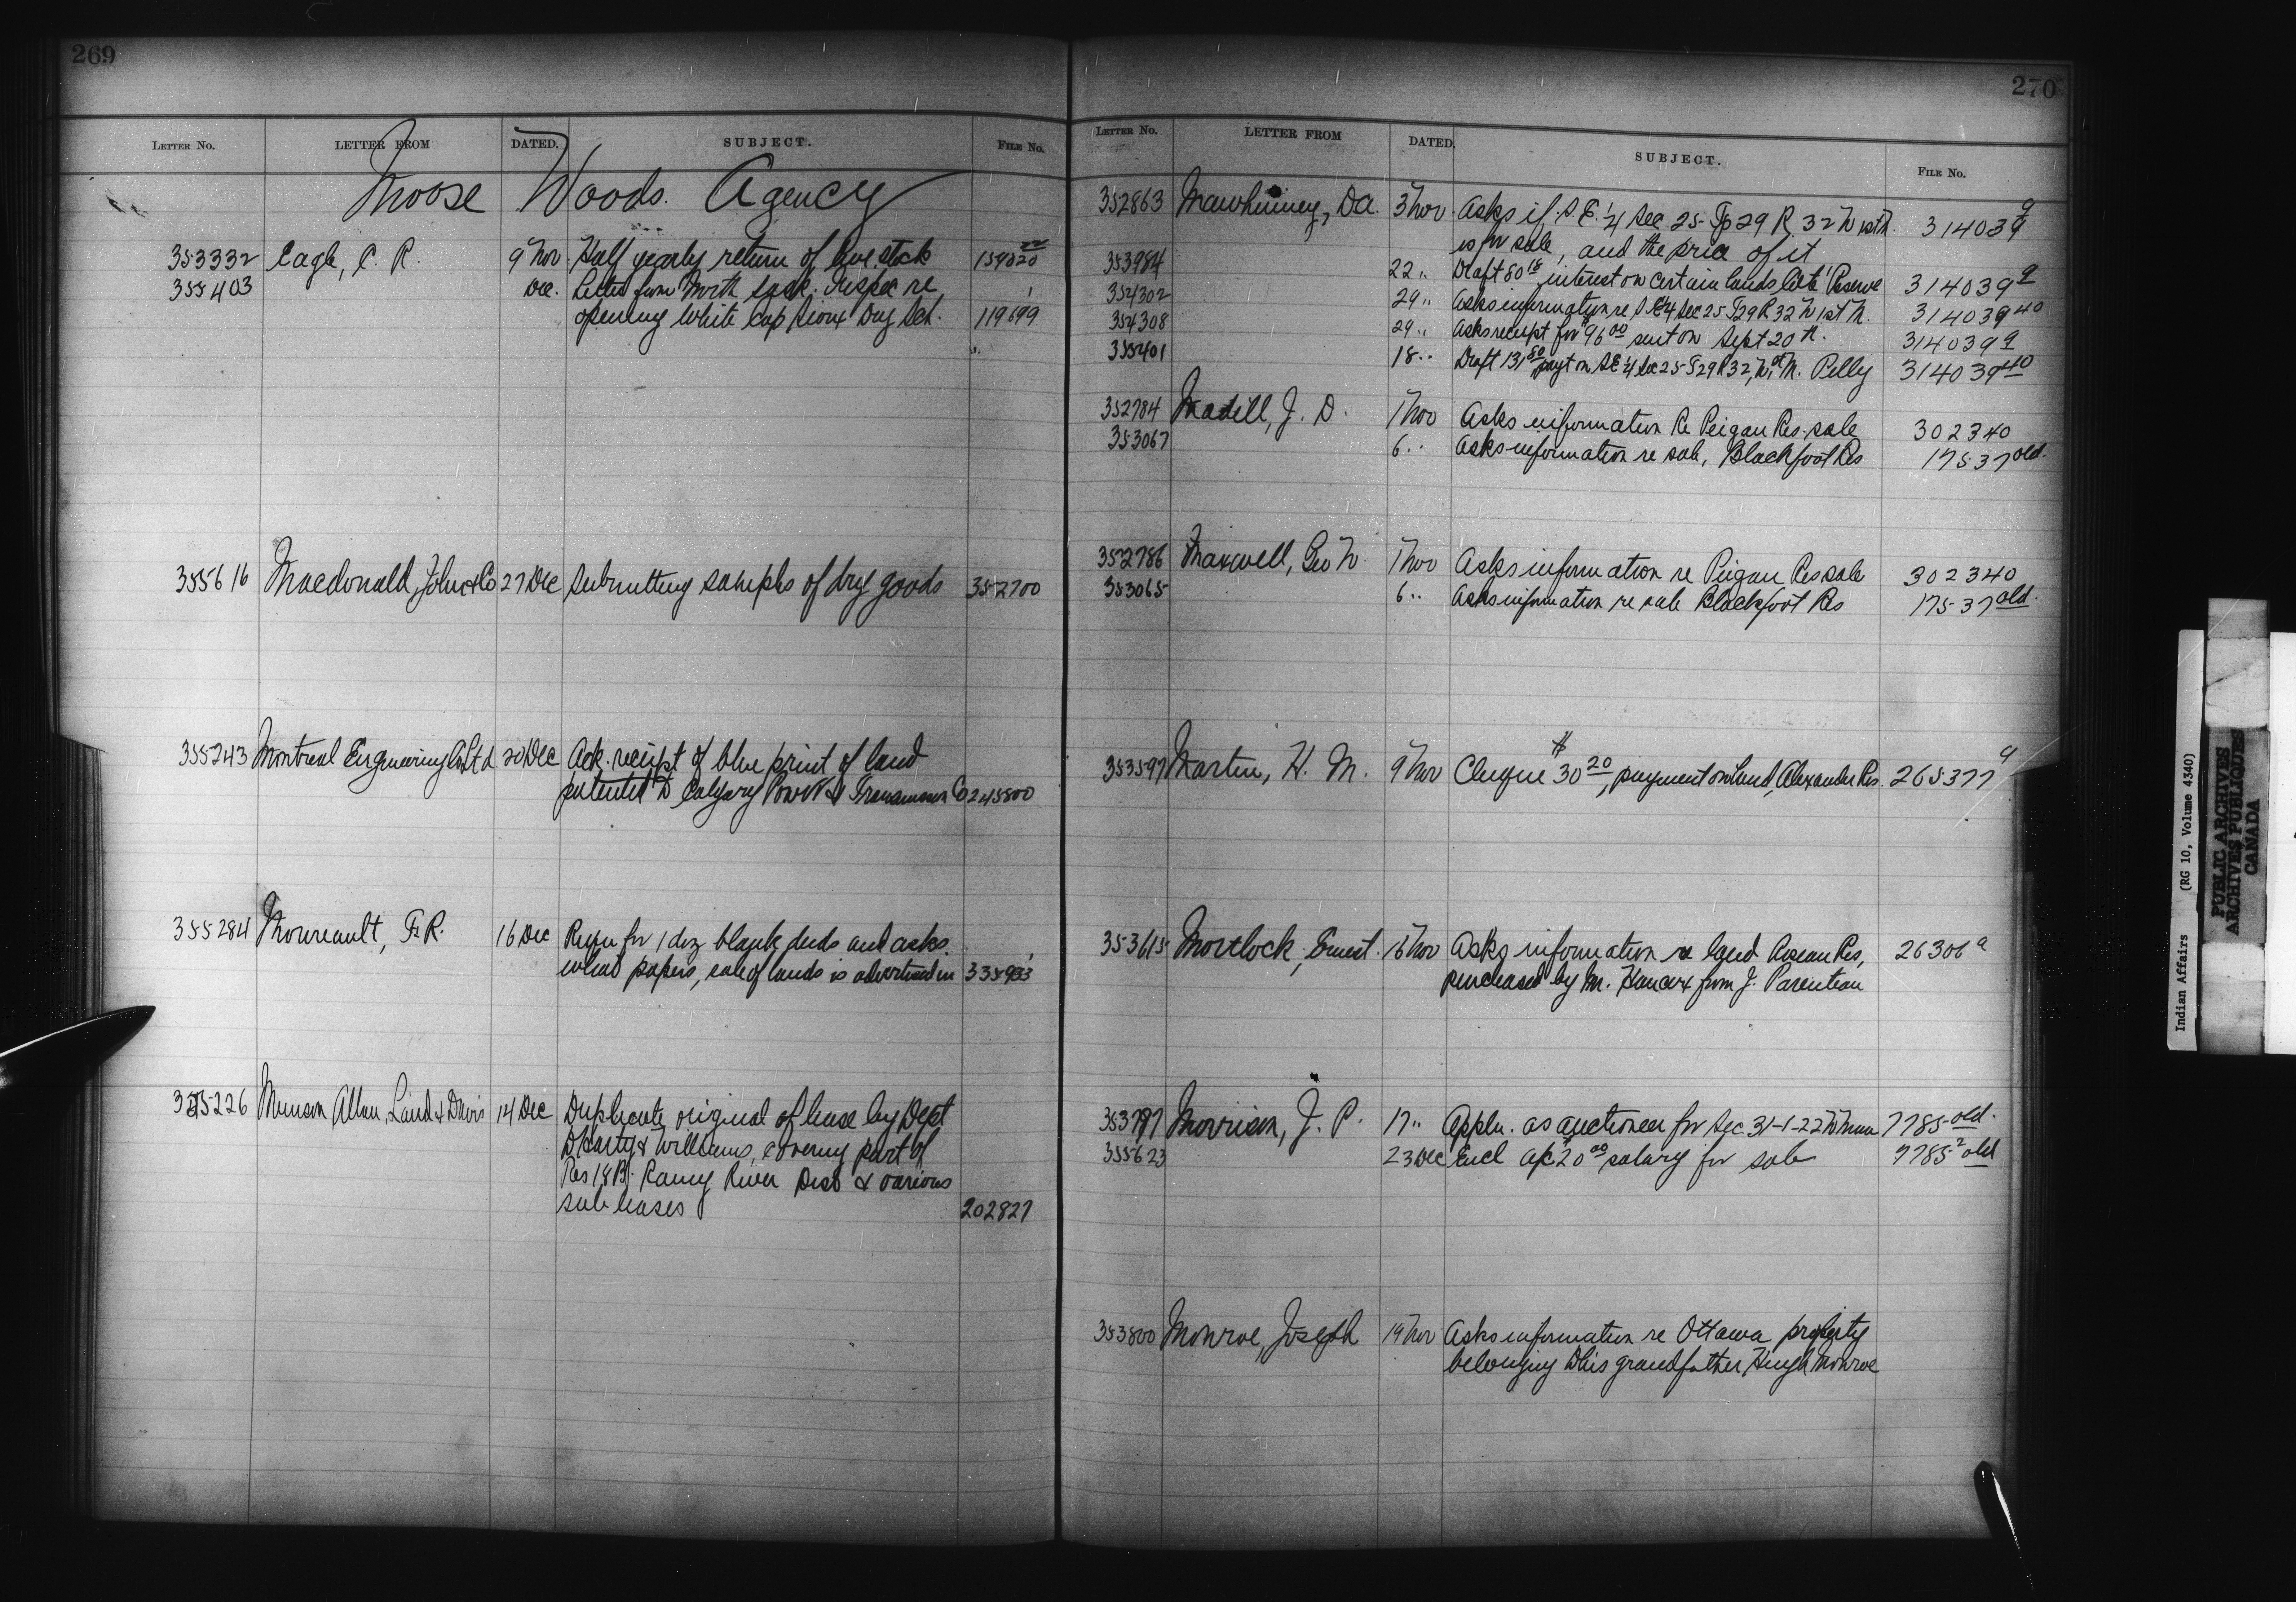 269
LETTER No. LETTER FROM DATED. SUBJECT. FILE No.
Moose Woods. Agency
353332 Eagle, C. R. 9 Nov Half yearly return of live stock
355403 Dec. Letter from North Sask. Inspec re
opening White Cap Sioux Day Sch. 119699
355616 Macdonald, John & Co 27 Dec Submitting samples of dry goods 352700
355243 Montreal Engineering Co Ltd 20 Dec Ack. receipt of blue print of land
patented to Calgary Power & Transmission Co 245800
355284 F. R. 16 Dec Requn for 1 doz blank deeds and asks
what papers, sale of lands is advertised in 335933
355226 Munson Allan, Laird & Davis 14 Dec Duplicate original of lease by Dept
to Harty & Williams, covering part of
Res 18B. Rainy River Dist & various
sub leases 202827
270
LETTER No. LETTER FROM DATED. SUBJECT. FILE No.
352863 Mawhinney, D.A. 3 Nov. Asks if S.E. 1/4 Sec 25 Tp 29 R. 32 W 1st M. 314039 9
is for sale, and the price of it
353984 22 " Draft 80 18 interest on certain lands Coté Reserve 314039 9
354302 29 " Asks information re S E 1/4 Sec 25 T 29 R 32 W 1st M. 314039 40
354308 29 " Asks receipt for 96 00 sent on Sept 20th. 314039 9
355401 18 " Draft 131 50 payt on SE 1/4 Sec 25 T 29 R 32, W 1st M. Pelly 314039 40
352784 Madill, J. D. 1 Nov Asks information Re Peigan Res. sale 302340
353067 6 " Asks information re sale, Blackfoot Res 17537 old.
352786 Maxwell, Geo W. 1 Nov Asks information re Peigan Res sale 302340
353065 6 " Asks information re sale Blackfoot Res 17537 old.
353597 Martin, H. M. 9 Nov Cheque $30 20, payment on land, Alexander Res. 265377 9
353615 Mortlock, Ernest. 15 Nov Asks information re land Roseau Res, 26306 a
purchased by Mr. from J. Parenteau
353797 Morrison, J. P. 17 " Appln. as auctioneer for Sec 31-1-22 W 7785 old.
355623 23 Dec Encl a/c 20 00 salary for sale 7785 2 old
353800 Monroe, Joseph 19 Nov Asks information re Ottawa property
belonging to his grandfather, Hugh Monroe
Indian Affairs (RG 10, Volume 4340)
PUBLIC ARCHIVES
ARCHIVES PUBLIQUES
CANADA